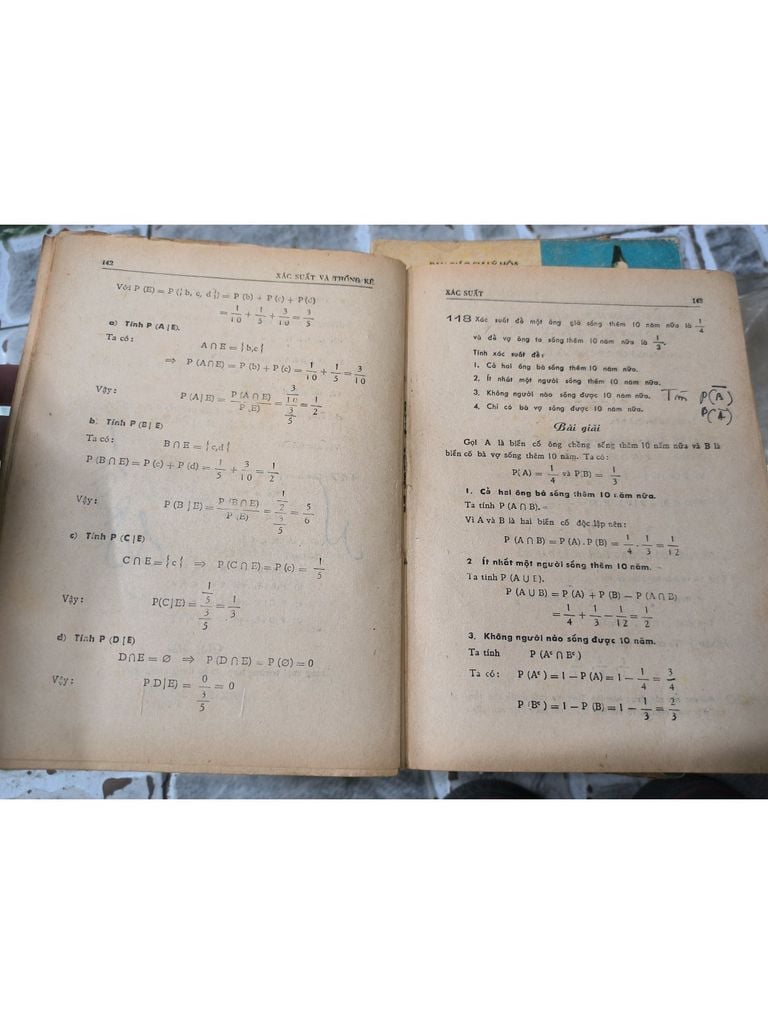 162
XÁC SUẤT VÀ THỐNG KÊ
Với P (E) = P ({ b, c, d }) = P (b) + P (c) + P (d)
= 1/10 + 1/5 + 3/10 = 3/5
a) Tính P (A | E).
Ta có : A ∩ E = { b,c {
⇒ P (A ∩ E) = P (b) + P (c) = 1/10 + 1/5 = 3/10
Vậy : P (A | E) = P (A ∩ E) / P (E) = (3/10) / (3/5) = 1/2
b. Tính P (B | E)
Ta có : B ∩ E = { c,d {
P (B ∩ E) = P (c) + P (d) = 1/5 + 3/10 = 1/2
Vậy : P (B | E) = P (B ∩ E) / P (E) = (1/2) / (3/5) = 5/6
c) Tính P (C | E)
C ∩ E = { c { ⇒ P (C ∩ E) = P (c) = 1/5
Vậy : P(C | E) = (1/5) / (3/5) = 1/3
d) Tính P (D | E)
D ∩ E = ∅ ⇒ P (D ∩ E) = P (∅) = 0
Vậy : P (D | E) = 0 / (3/5) = 0
XÁC SUẤT
163
118 Xác suất để một ông già sống thêm 10 năm nữa là 1/4
và để vợ ông ta sống thêm 10 năm nữa là 1/3.
Tính xác suất để :
1. Cả hai ông bà sống thêm 10 năm nữa.
2. Ít nhất một người sống thêm 10 năm nữa.
3. Không người nào sống được 10 năm nữa. Tìm P(A̅)
4. Chỉ có bà vợ sống được 10 năm nữa. P(A̅)
Bài giải
Gọi A là biến cố ông chồng sống thêm 10 năm nữa và B là
biến cố bà vợ sống thêm 10 năm. Ta có :
P( A) = 1/4 và P(B) = 1/3
1. Cả hai ông bà sống thêm 10 năm nữa.
Ta tính P (A ∩ B).
Vì A và B là hai biến cố độc lập nên :
P (A ∩ B) = P (A) . P (B) = 1/4 . 1/3 = 1/12
2 Ít nhất một người sống thêm 10 năm.
Ta tính P (A ∪ E).
P (A ∪ B) = P (A) + P (B) − P (A ∩ B)
= 1/4 + 1/3 − 1/12 = 1/2
3. Không người nào sống được 10 năm.
Ta tính P (Aᶜ ∩ Bᶜ )
Ta có : P (Aᶜ ) = 1 − P (A) = 1 − 1/4 = 3/4
P (Bᶜ ) = 1 − P (B) = 1 − 1/3 = 2/3